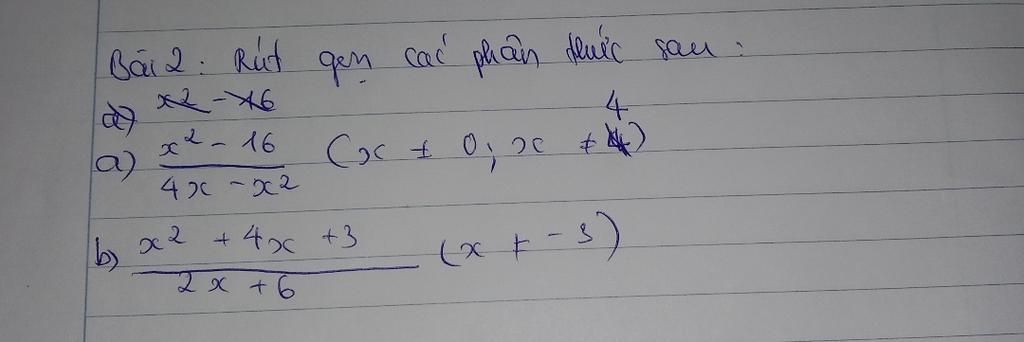 Bài 2: Rút gọn các phân thức sau:
a) x2 - 16
a) x² - 16 / 4x - x² (x ≠ 0; x ≠ 4)
b) x² + 4x + 3 / 2x + 6 (x ≠ -3)